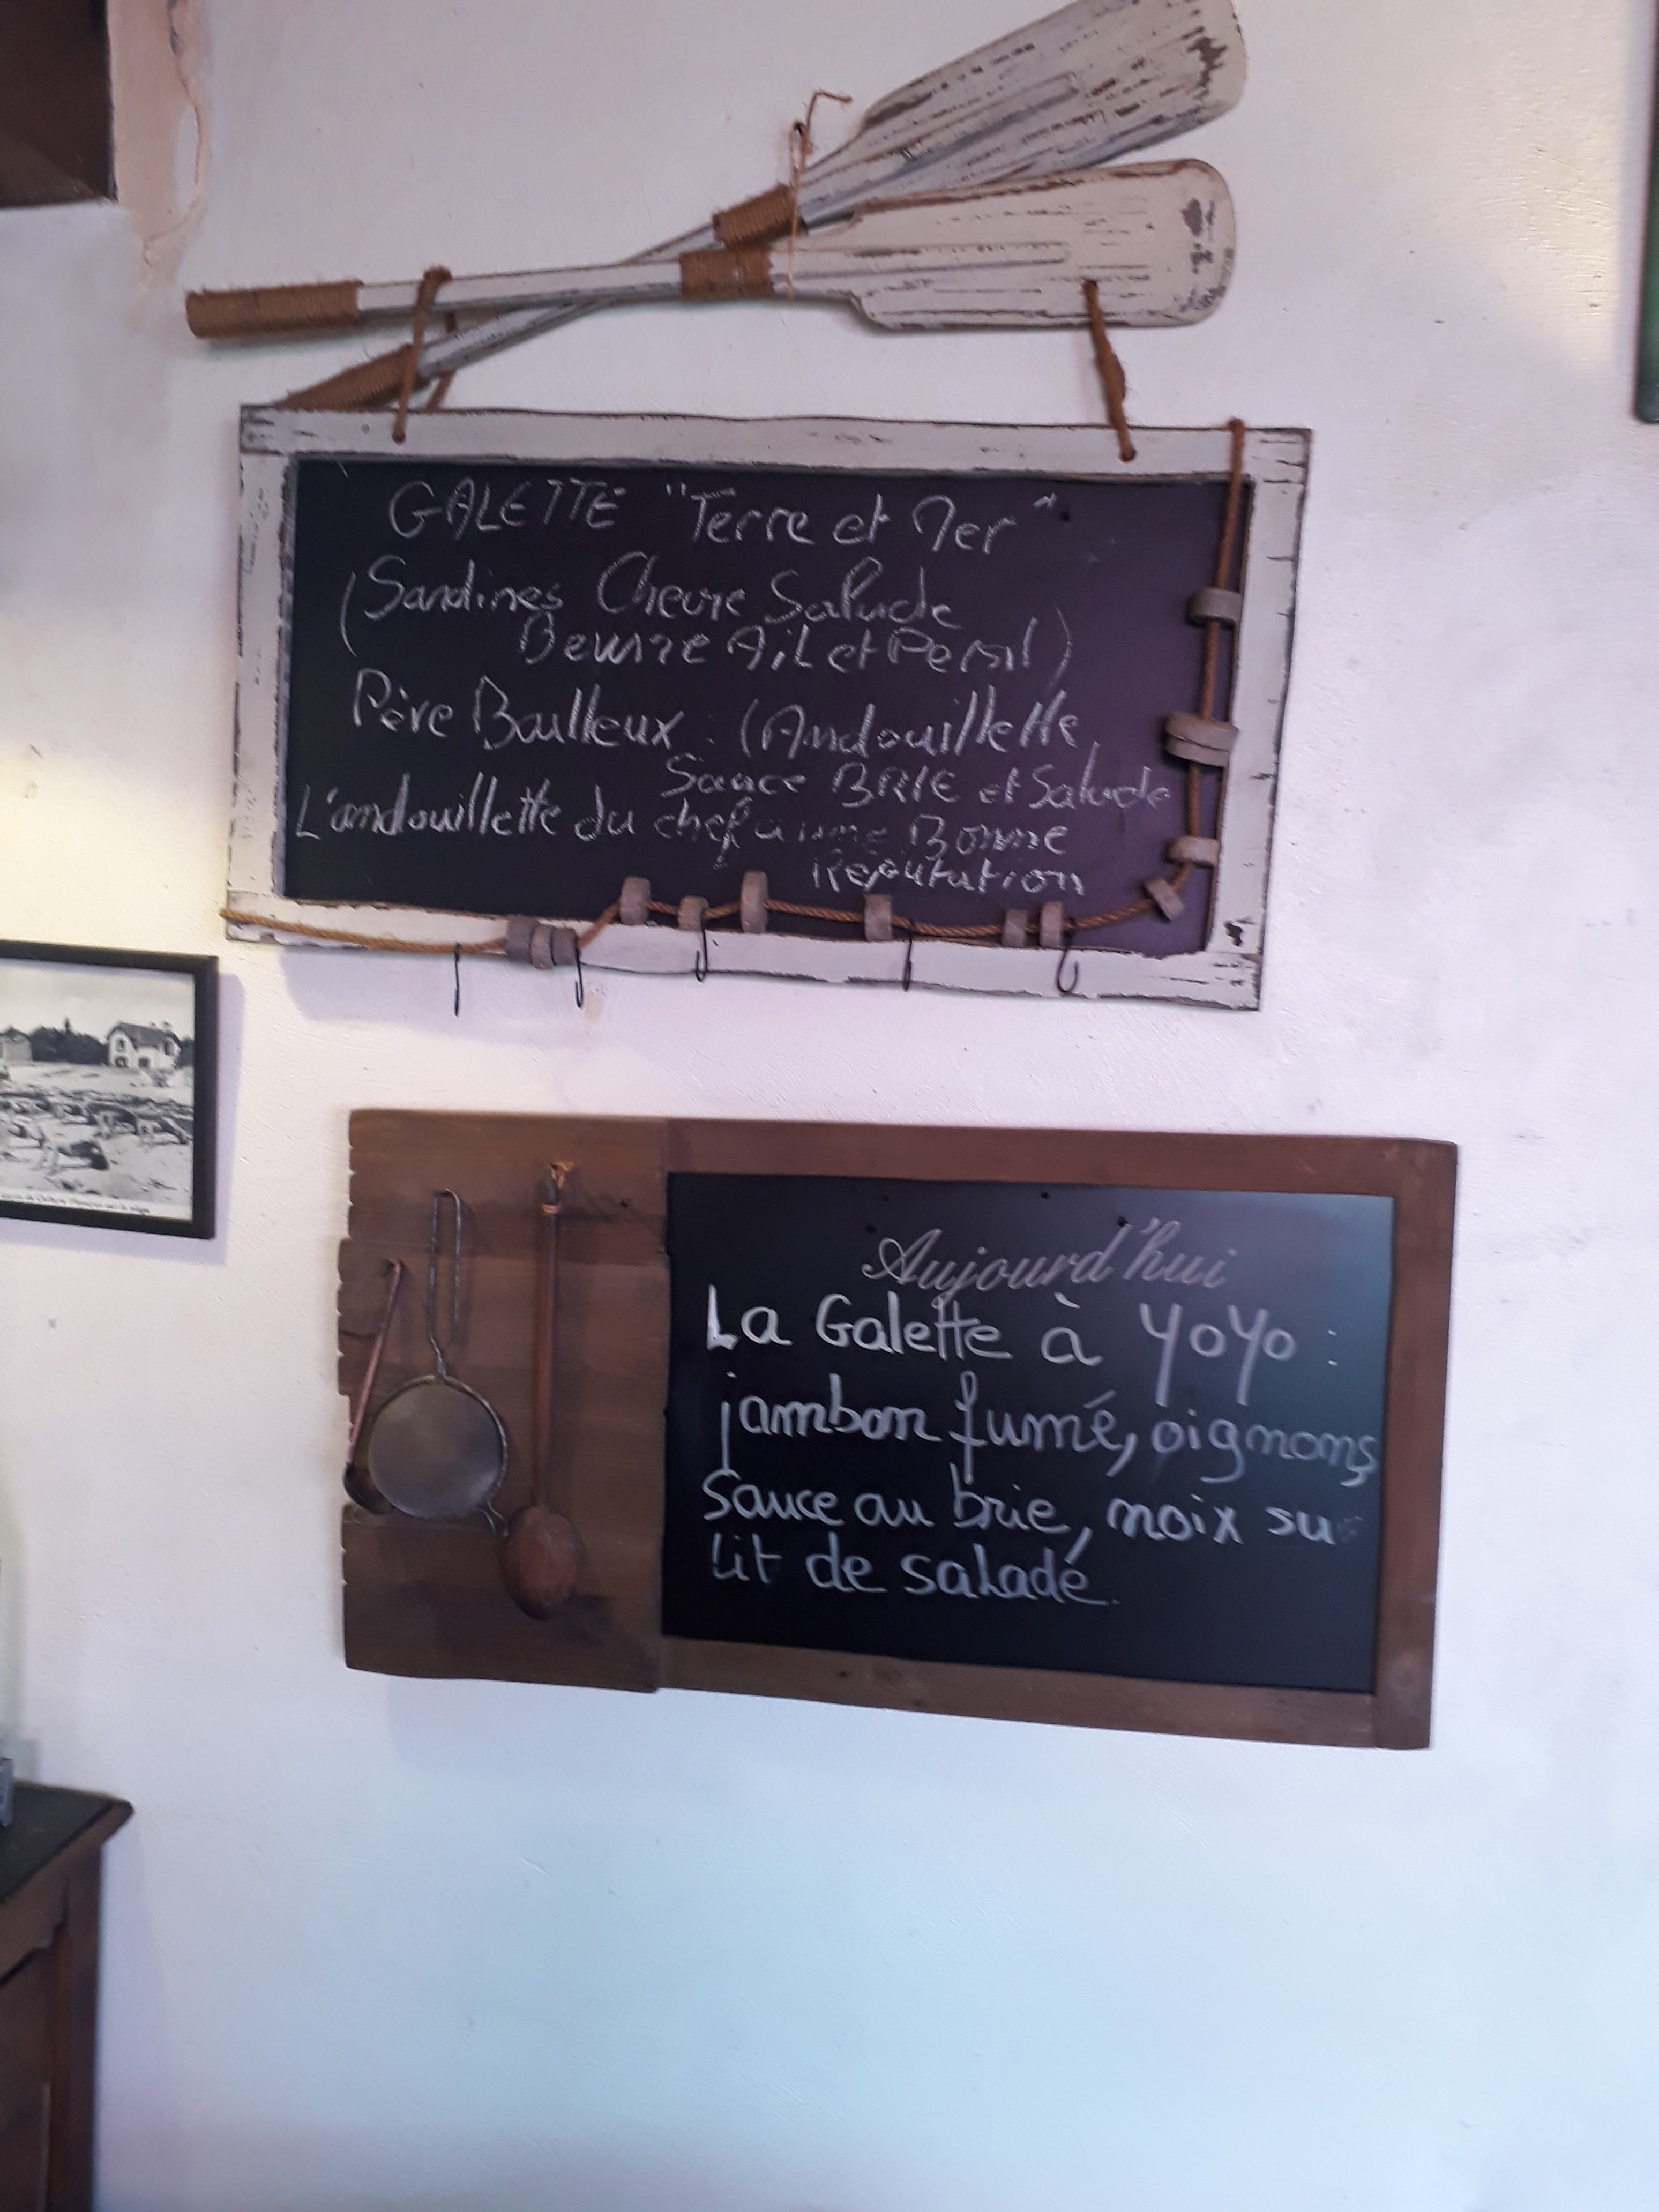 GALETTE "Terre et Mer"
(Sardines Chevre Salade
Beurre Ail et Persil)
Père Bailleux : (Andouillette
Sauce BRIE et Salade
L'andouillette du chef a une Bonne
Réputation
Aujourd'hui
La Galette à YoYo :
jambon fumé, oignons
sauce au brie, noix su
lit de saladé.